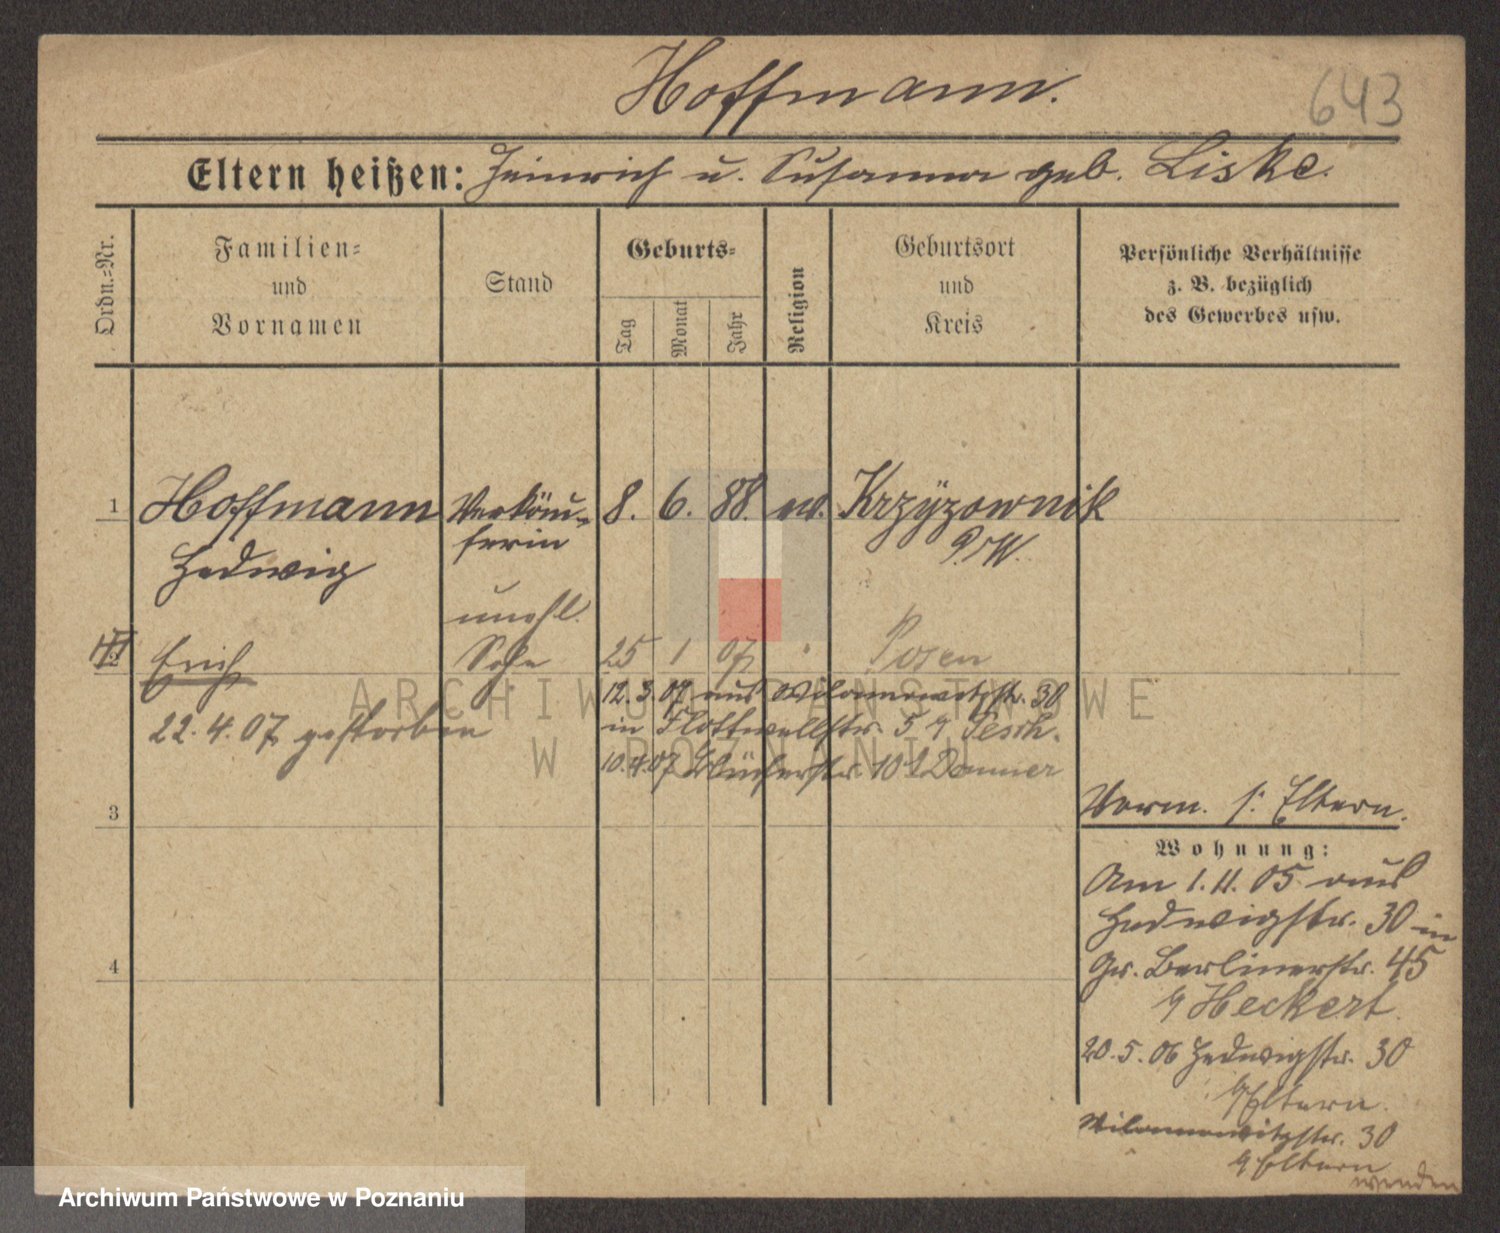 Hoffmann.
643
Eltern heißen: Heinrich u. Susanna geb. Liske.
Ordn.=Nr.
Familien=
und
Vornamen
Stand
Geburts=
Tag
Monat
Jahr
Religion
Geburtsort
und
Kreis
Persönliche Verhältnisse
z. B. bezüglich
des Gewerbes usw.
1 Hoffmann Verkäu= 8. 6. 88. ev. Krzÿzownik
Hedwig ferin P. W.
unehl.
2 Erich Sohn 25 1 07 Posen
12.3.07 aus Wilamowitzstr. 30
22.4.07 gestorben in Flottwellstr. 5 Pesch.
10.4.07 Blücherstr. 10 Donner
3
Vorm. s. Eltern.
Wohnung:
Am 1.11.05 aus
Hedwigstr. 30 in
Gr. Berlinerstr. 45
Heckert.
4
20.5.06 Hedwigstr. 30
Eltern.
Wilamowitzstr. 30
Eltern
wenden
ARCHIWUM PAŃSTWOWE
W POZNANIU
Archiwum Państwowe w Poznaniu